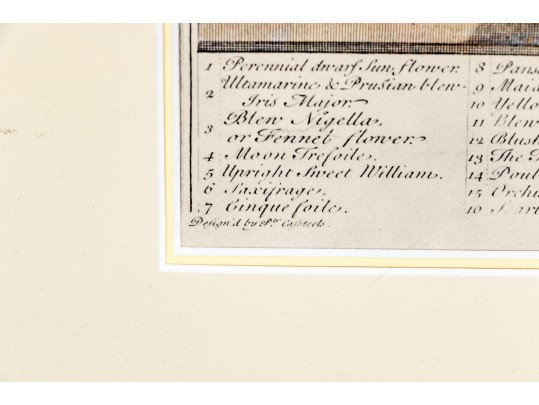 1 Perennial dwarf Sun flower.
2 Ultamarine & Prusian blew
Iris Major.
3 Blew Nigella,
or Fennel flower.
4 Moon Trefoile.
5 Upright Sweet William.
6 Saxifrage.
7 Cinque foile.
Design'd by Pr. Casteels.
8 Pans
9 Maid
10 Yello
11 Blew
12 Blush
13 The
14 Poul
15 Orchi
16